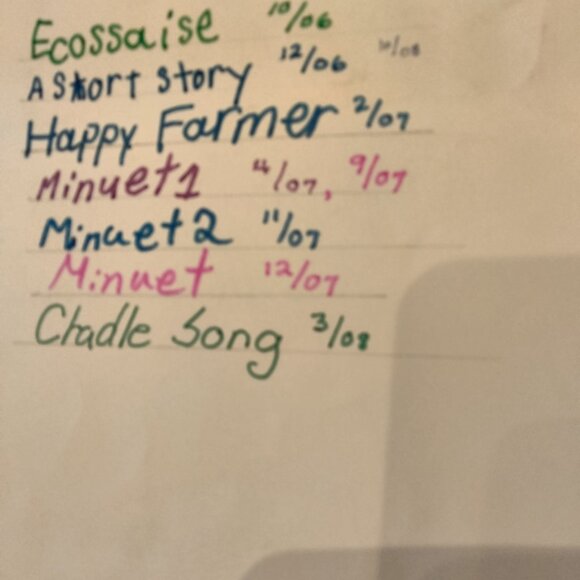 Ecossaise 10/06
A Short Story 12/06 10/08
Happy Farmer 2/07
Minuet 1 4/07, 9/07
Minuet 2 11/07
Minuet 12/07
Cradle Song 3/08